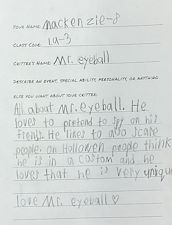 YOUR NAME: mackenzie-8
CLASS CODE: 1a-3
CRITTER'S NAME: Mr. eyeball
DESCRIBE AN EVENT, SPECIAL ABILITY, PERSONALITY, OR ANYTHING
ELSE YOU WANT ABOUT YOUR CRITTER:
All about Mr. eyeball. He
loves to pretend to spy on his
friends. He likes to also scare
people. on Holloween people think
he is in a costom and he
loves that he is very unique
love Mr. eyeball ♡